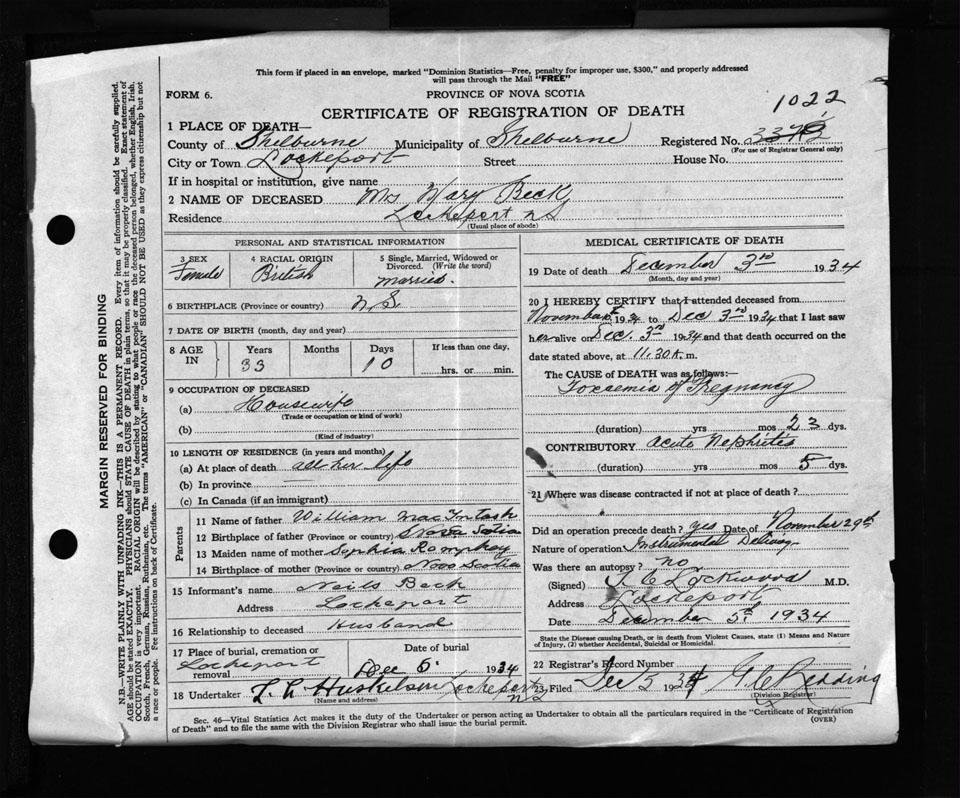 This form if placed in an envelope, marked "Dominion Statistics—Free, penalty for improper use, $300," and properly addressed
will pass through the Mail "FREE"
FORM 6.
PROVINCE OF NOVA SCOTIA
CERTIFICATE OF REGISTRATION OF DEATH
1022
1 PLACE OF DEATH—
County of Shelburne Municipality of Shelburne Registered No. 337
(For use of Registrar General only)
City or Town Lockeport Street House No.
If in hospital or institution, give name
2 NAME OF DECEASED Mrs Mary Beck
Residence Lockeport NS
(Usual place of abode)
PERSONAL AND STATISTICAL INFORMATION
3 SEX Female
4 RACIAL ORIGIN British
5 Single, Married, Widowed or Divorced. (Write the word) married.
6 BIRTHPLACE (Province or country) N.S
7 DATE OF BIRTH (month, day and year)
8 AGE IN Years 33 Months Days 10 If less than one day, hrs. or min.
9 OCCUPATION OF DECEASED
(a) Housewife
(Trade or occupation or kind of work)
(b)
(Kind of industry)
10 LENGTH OF RESIDENCE (in years and months)
(a) At place of death all her life
(b) In province
(c) In Canada (if an immigrant)
Parents
11 Name of father William MacIntosh
12 Birthplace of father (Province or country) Nova Scotia
13 Maiden name of mother Sophia Romphey
14 Birthplace of mother (Province or country) Nova Scotia
15 Informant's name Neils Beck
Address Lockeport
16 Relationship to deceased Husband
17 Place of burial, cremation or removal Lockeport
Date of burial Dec 5. 1934
18 Undertaker T. L. Huskilson Lockeport NS
(Name and address)
MEDICAL CERTIFICATE OF DEATH
19 Date of death December 3rd 1934
(Month, day and year)
20 I HEREBY CERTIFY that I attended deceased from
November 1934 to Dec 3rd 1934 that I last saw
her alive on Dec. 3rd 1934 and that death occurred on the
date stated above, at 11.30 A.m.
The CAUSE OF DEATH was as follows:—
Toxaemia of Pregnancy
(duration) yrs mos 23 dys.
CONTRIBUTORY Acute Nephritis
(duration) yrs mos 5 dys.
21 Where was disease contracted if not at place of death?
Did an operation precede death? yes Date of November 29th
Nature of operation Instrumental Delivery
Was there an autopsy? no
(Signed) Lockwood M.D.
Address Lockeport
Date December 5th 1934
State the Disease causing Death, or in death from Violent Causes, state (1) Means and Nature
of Injury, (2) whether Accidental, Suicidal or Homicidal.
22 Registrar's Record Number
23 Filed Dec 5 1934 Redding
(Division Registrar)
Sec. 46—Vital Statistics Act makes it the duty of the Undertaker or person acting as Undertaker to obtain all the particulars required in the "Certificate of Registration
of Death" and to file the same with the Division Registrar who shall issue the burial permit.
(OVER)
MARGIN RESERVED FOR BINDING
N.B.—WRITE PLAINLY WITH UNFADING INK—THIS IS A PERMANENT RECORD. Every item of information should be carefully supplied.
AGE should be stated EXACTLY. PHYSICIANS should STATE CAUSE OF DEATH in plain terms, so that it may be properly classified. Exact statement of
OCCUPATION is very important. RACIAL ORIGIN will be described by stating to what people or race the deceased person belonged, whether English, Irish,
Scotch, French, German, Russian, Ruthenian, etc. The terms "AMERICAN" or "CANADIAN" SHOULD NOT BE USED as they express citizenship but not
a race or people. See instructions on back of Certificate.